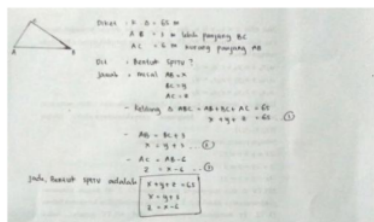 C
A B
Diket : K Δ = 65 m
AB = 3 m lebih panjang BC
AC = 6 m kurang panjang AB
Dit : Bentuk SPLTV ?
Jawab : misal AB = x
BC = y
AC = z
- Keliling Δ ABC = AB + BC + AC = 65
x + y + z = 65 ... ①
- AB = BC + 3
x = y + 3 ... ②
- AC = AB - 6
z = x - 6 ... ③
Jadi, Bentuk adalah
x + y + z = 65
x = y + 3
z = x - 6